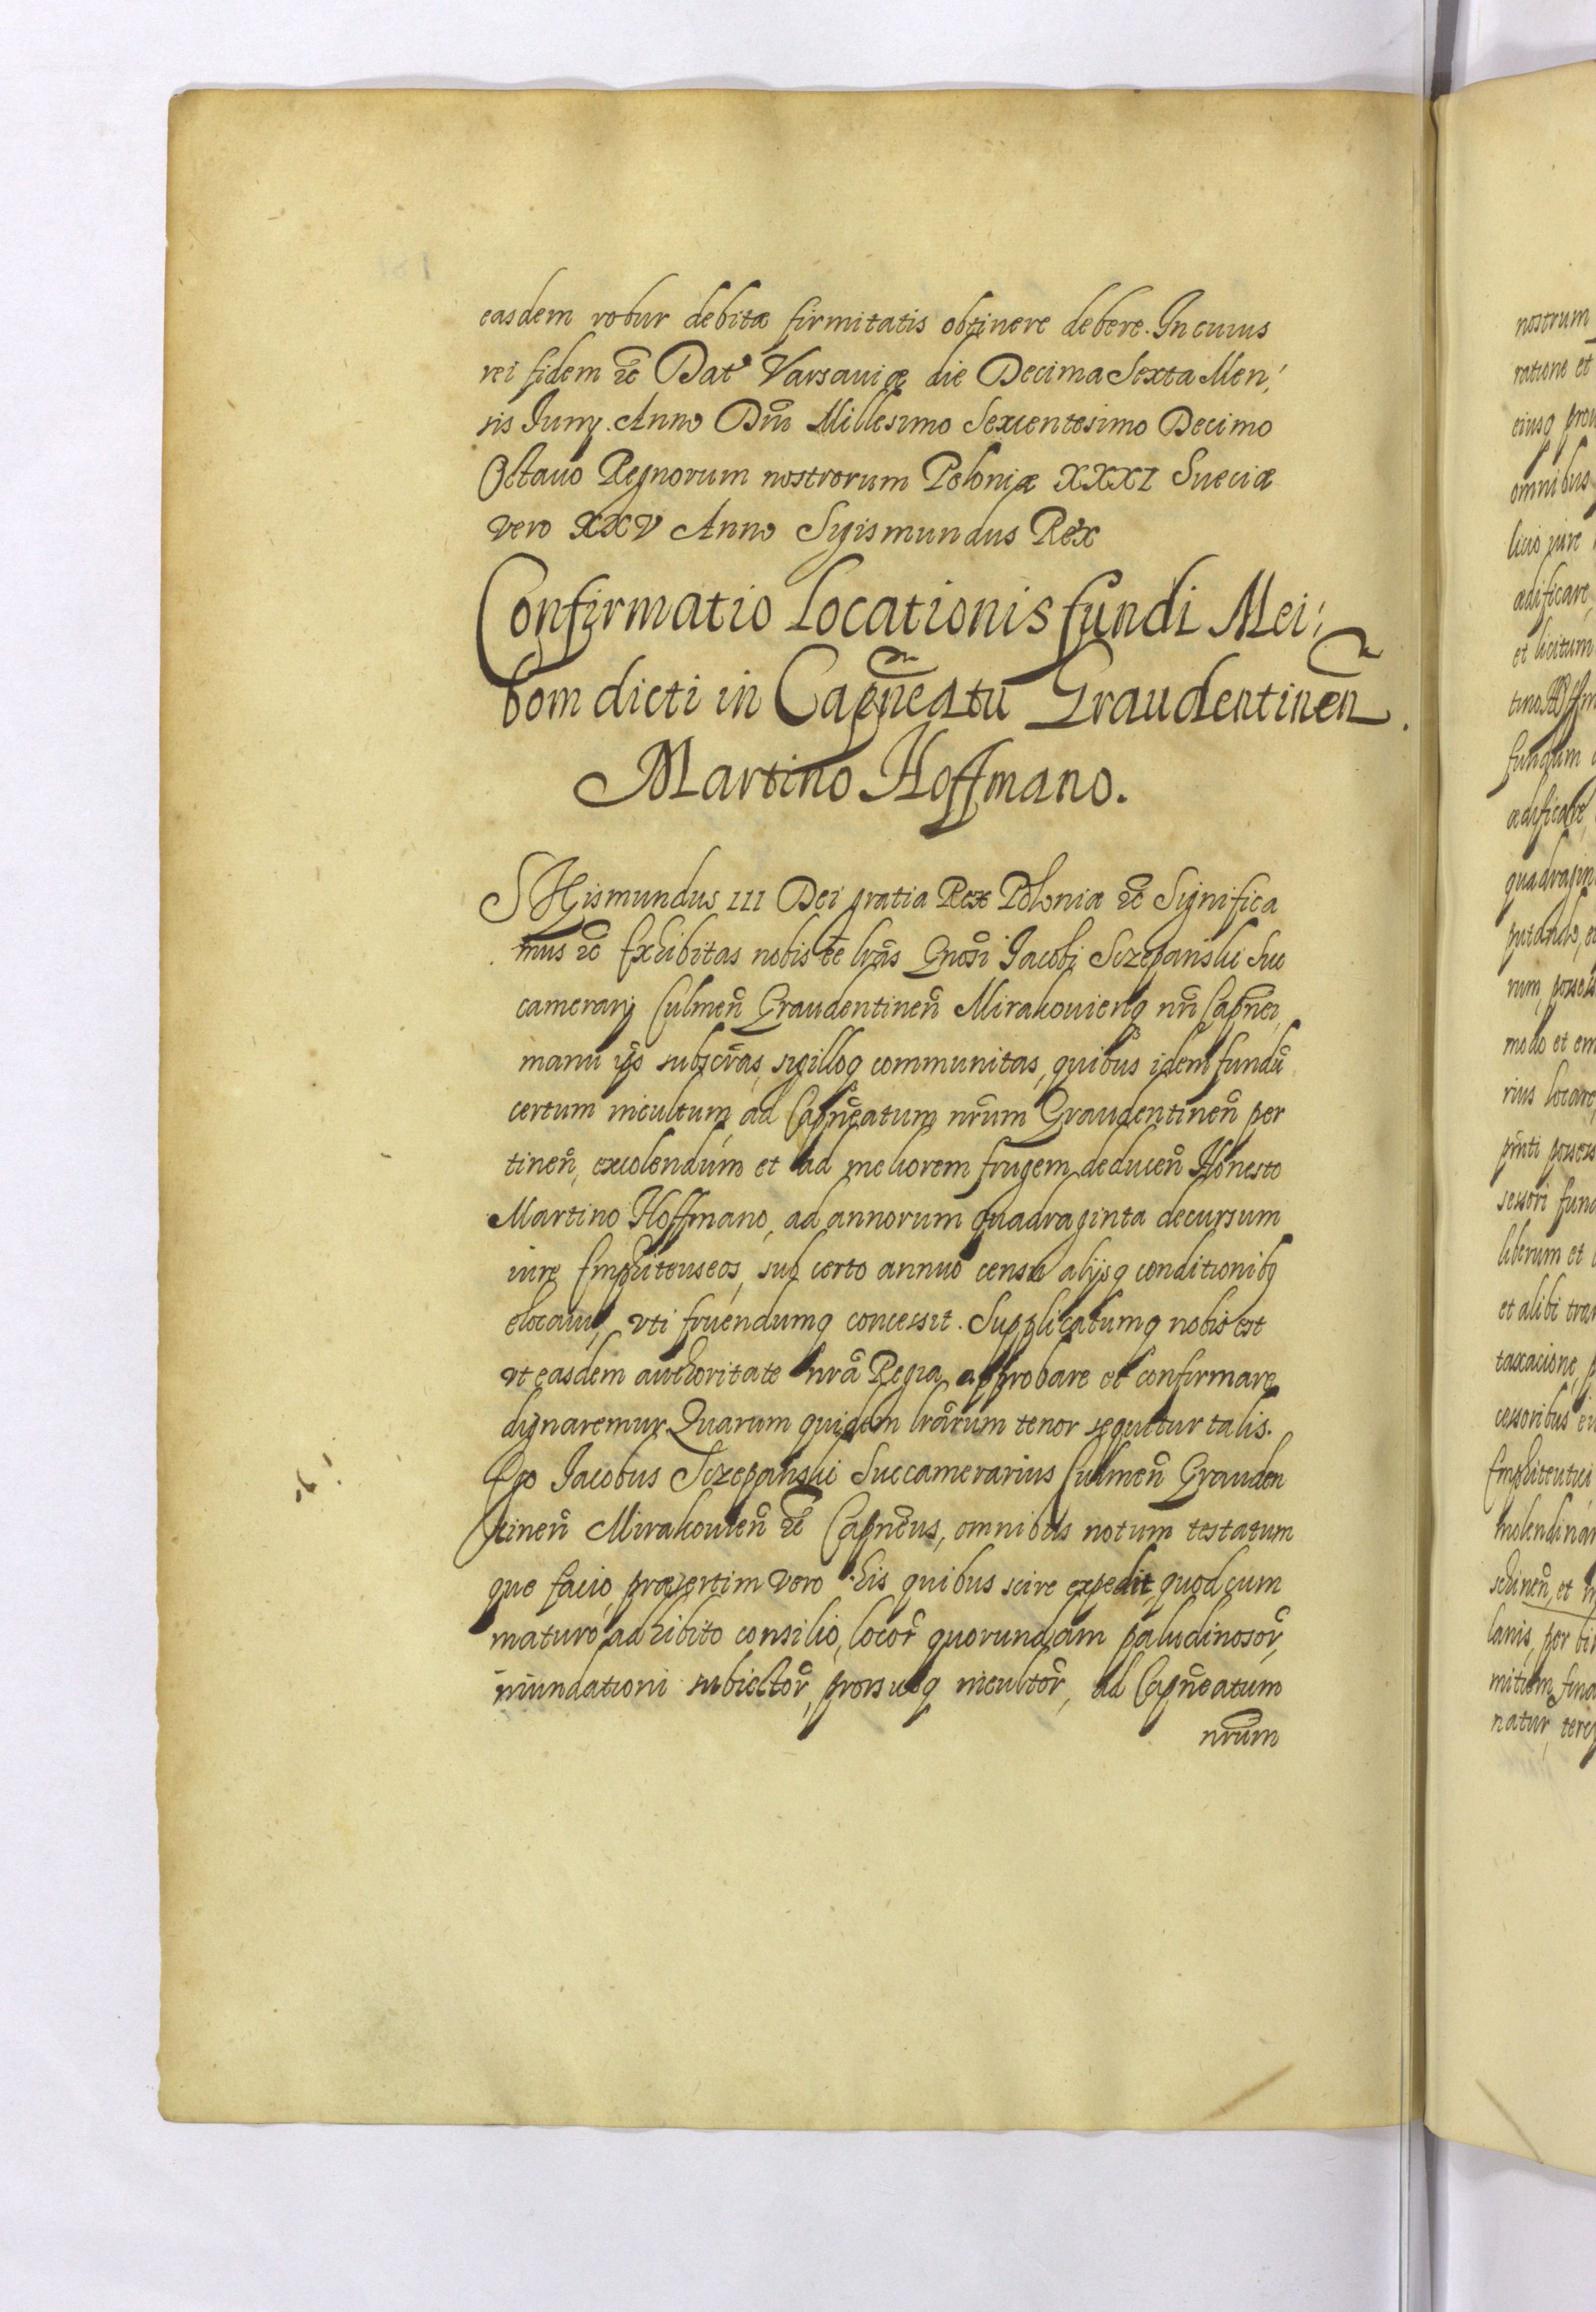 easdem robur debitæ firmitatis obtinere debere. In cuius
rei fidem etc Dat Varsauiæ die Decima Sexta Men:
sis Iunij. Anno Dni Millesimo Sexcentesimo Decimo
Octauo Regnorum nostrorum Poloniæ XXXI Sueciæ
vero XXV Anno Sigismundus Rex
Confirmatio locationis fundi Mei:
bom dicti in Capneatu Graudentinen.
Martino Hoffmano.
SIgismundus III Dei gratia Rex Poloniæ etc Significa
mus etc Exhibitas nobis ee lras Gnosi Jacobi Sczepanski Suc
camerarij Culmen Graudentinen Mirakouienq nri Capnei,
manu ips subscras, sigilloq communitas, quibus idem fundu
certum incultum, ad Capneatum nrum Graudentinen per
tinen, excolendum et ad meliorem frugem deducen Honesto
Martino Hoffmano, ad annorum quadraginta decursum
iure Emphiteuseos, sub certo annuo censu alijsq conditionibq
elocauit, vti fruendumq concessit. Supplicatumq nobis est
vt easdem authoritate nra Regia approbare et confirmare
dignaremur Quarum quidem lrarum tenor sequitur talis.
Ego Jacobus Sczepanski Succamerarius Culmen Grauden
tinen Mirakouien etc Capneus, omnibus notum testatum
que facio, præsertim vero his quibus scire expedit, quod cum
maturo adhibito consilio, locor quorundam paludinosor,
inundationi subiector, prorsusq incultor, ad Capneatum
nrum
nostrum
ratione et
eiusq
omnibus
licio iure
ædificare,
et licitum
fundum
ædificare
rum, posses
modo et em
rius locare,
pnti posses
sessori fund
liberum et
et alibi tran
taxacione, p
cessoribus
Emphiteutici
molendinar
schinen, et
lanis, per
mitium
natur,